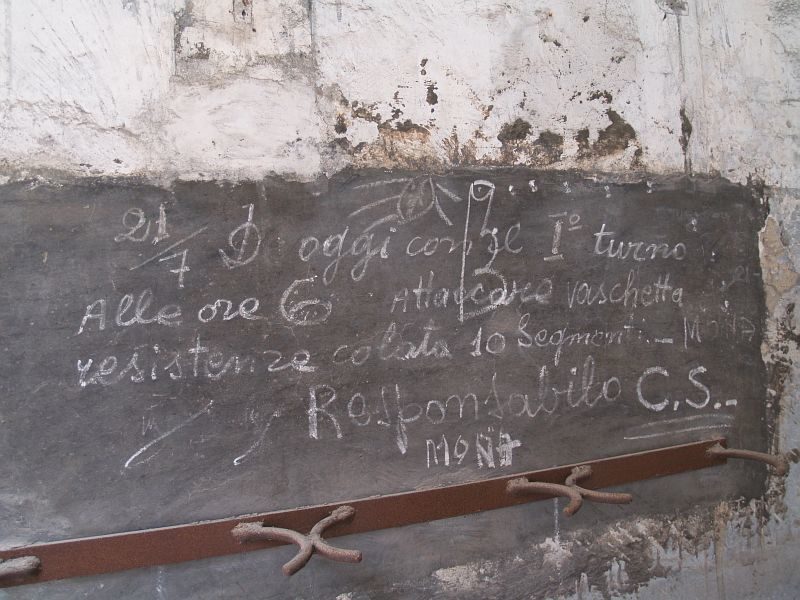 21/7 Di oggi con il Iº turno
Alle ore 6 Attaccare vaschetta
resistenze colata 10 Segmenti - MONA
Responsabilo C.S.-
MONA